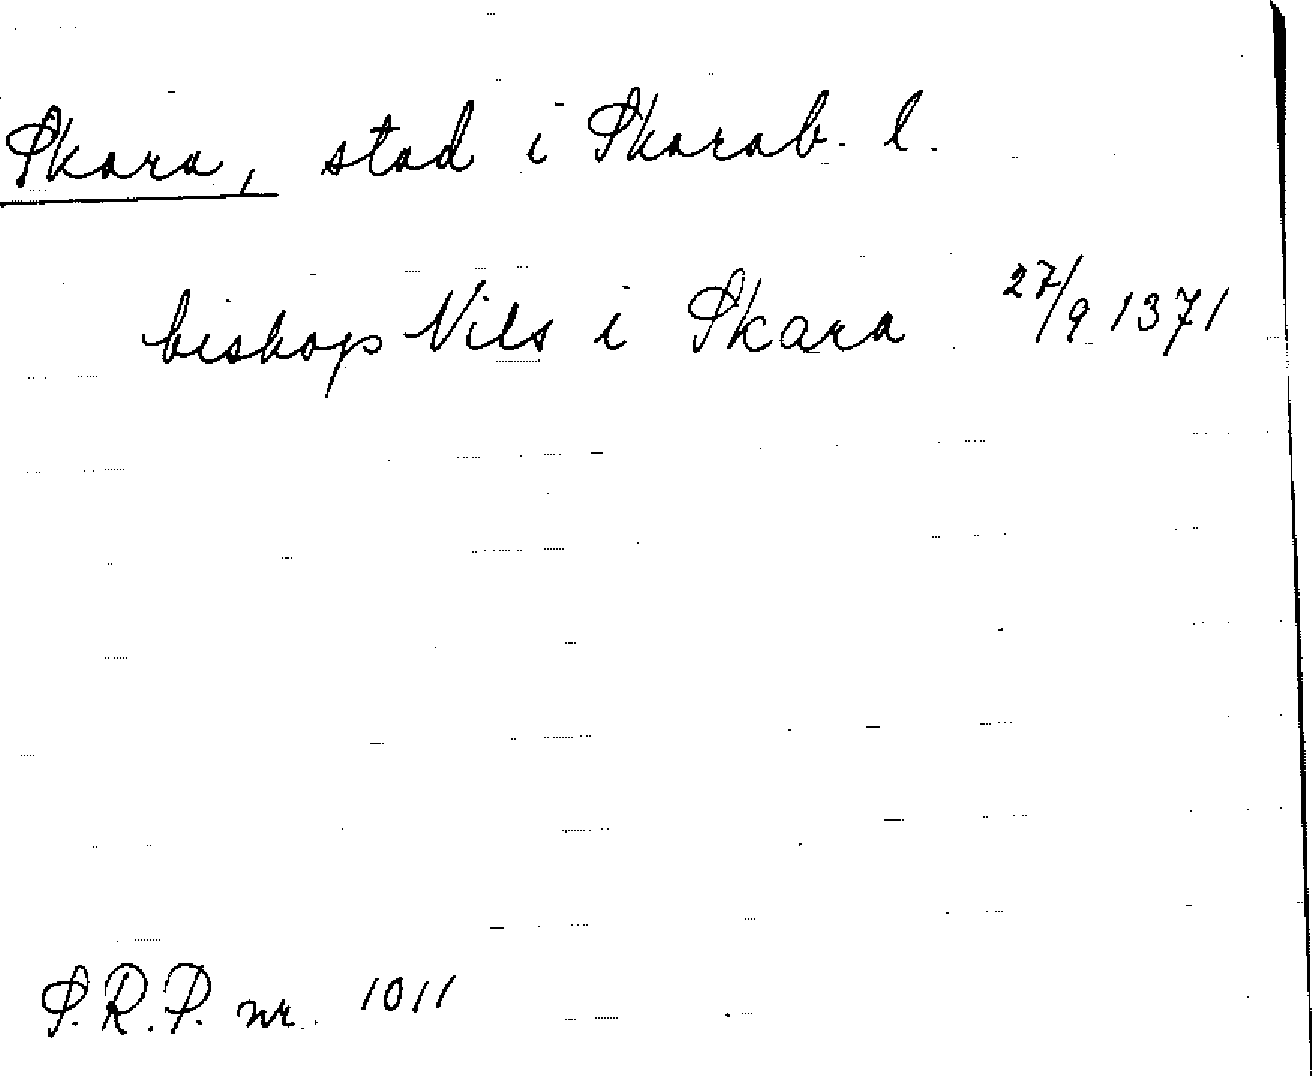 Skara, stad i Skarab. l.
biskop Nils i Skara 27/9 1371
S.R.P. nr. 1011